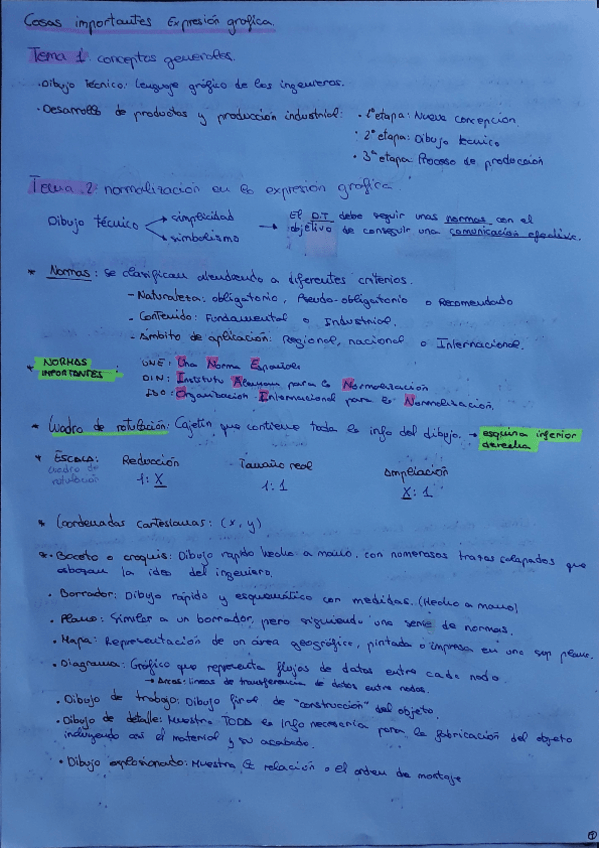 Cosas importantes Expresión gráfica.
Tema 1: conceptos generales.
· Dibujo técnico: Lenguaje gráfico de los ingenieros.
· Desarrollo de productos y producción industrial: · 1ª etapa: Nueva concepción.
· 2ª etapa: Dibujo técnico
· 3ª etapa: Proceso de producción
Tema 2: normalización en la expresión gráfica.
Dibujo técnico → simplicidad
→ simbolismo
→ El D.T debe seguir unas normas con el
objetivo de conseguir una comunicación efectiva.
* Normas: se clasifican atendiendo a diferentes criterios.
- Naturaleza: obligatorio, Pseudo-obligatorio o Recomendado
- Contenido: Fundamental o Industrial.
- Ámbito de aplicación: Regional, nacional o Internacional.
* NORMAS IMPORTANTES: · UNE: Una Norma Española
DIN: Instituto Alemán para la Normalización
ISO: Organización Internacional para la Normalización.
* Cuadro de rotulación: Cajetín que contiene toda la info del dibujo. → esquina inferior
derecha
* ESCALA: Reducción Tamaño real Ampliación
cuadro de rotulación 1:X 1:1 X:1
* Coordenadas cartesianas: (x, y)
* · Boceto o croquis: Dibujo rápido hecho a mano, con numerosos trazos solapados que
esbozan la idea del ingeniero.
· Borrador: Dibujo rápido y esquemático con medidas. (Hecho a mano)
· Plano: Similar a un borrador, pero siguiendo una serie de normas.
· Mapa: Representación de un área geográfica, pintada o impresa en una sup plana.
· Diagrama: Gráfico que representa flujos de datos entre cada nodo
→ Arcos: líneas de transferencia de datos entre nodos.
· Dibujo de trabajo: Dibujo final de "construcción" del objeto.
· Dibujo de detalle: Muestra TODA la info necesaria para la fabricación del objeto
incluyendo así el material y su acabado.
· Dibujo explosionado: Muestra la relación o el orden de montaje
1